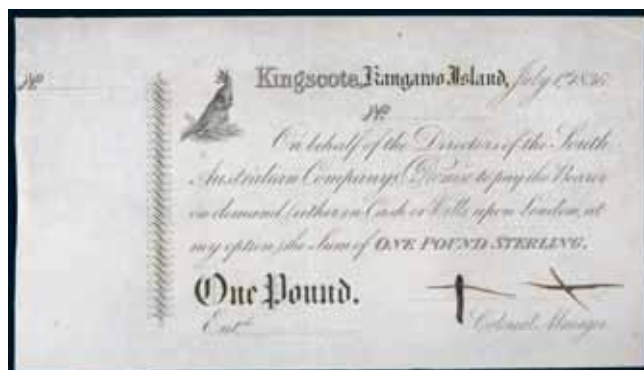 No.
Kingscote, Kangaroo Island, July 1st 1836
No.
On behalf of the Directors of the South
Australian Company, I Promise to pay the Bearer
on demand (either in Cash or Bills upon London, at
my option) the Sum of ONE POUND STERLING.
One Pound.
Entd.
Colonial Manager